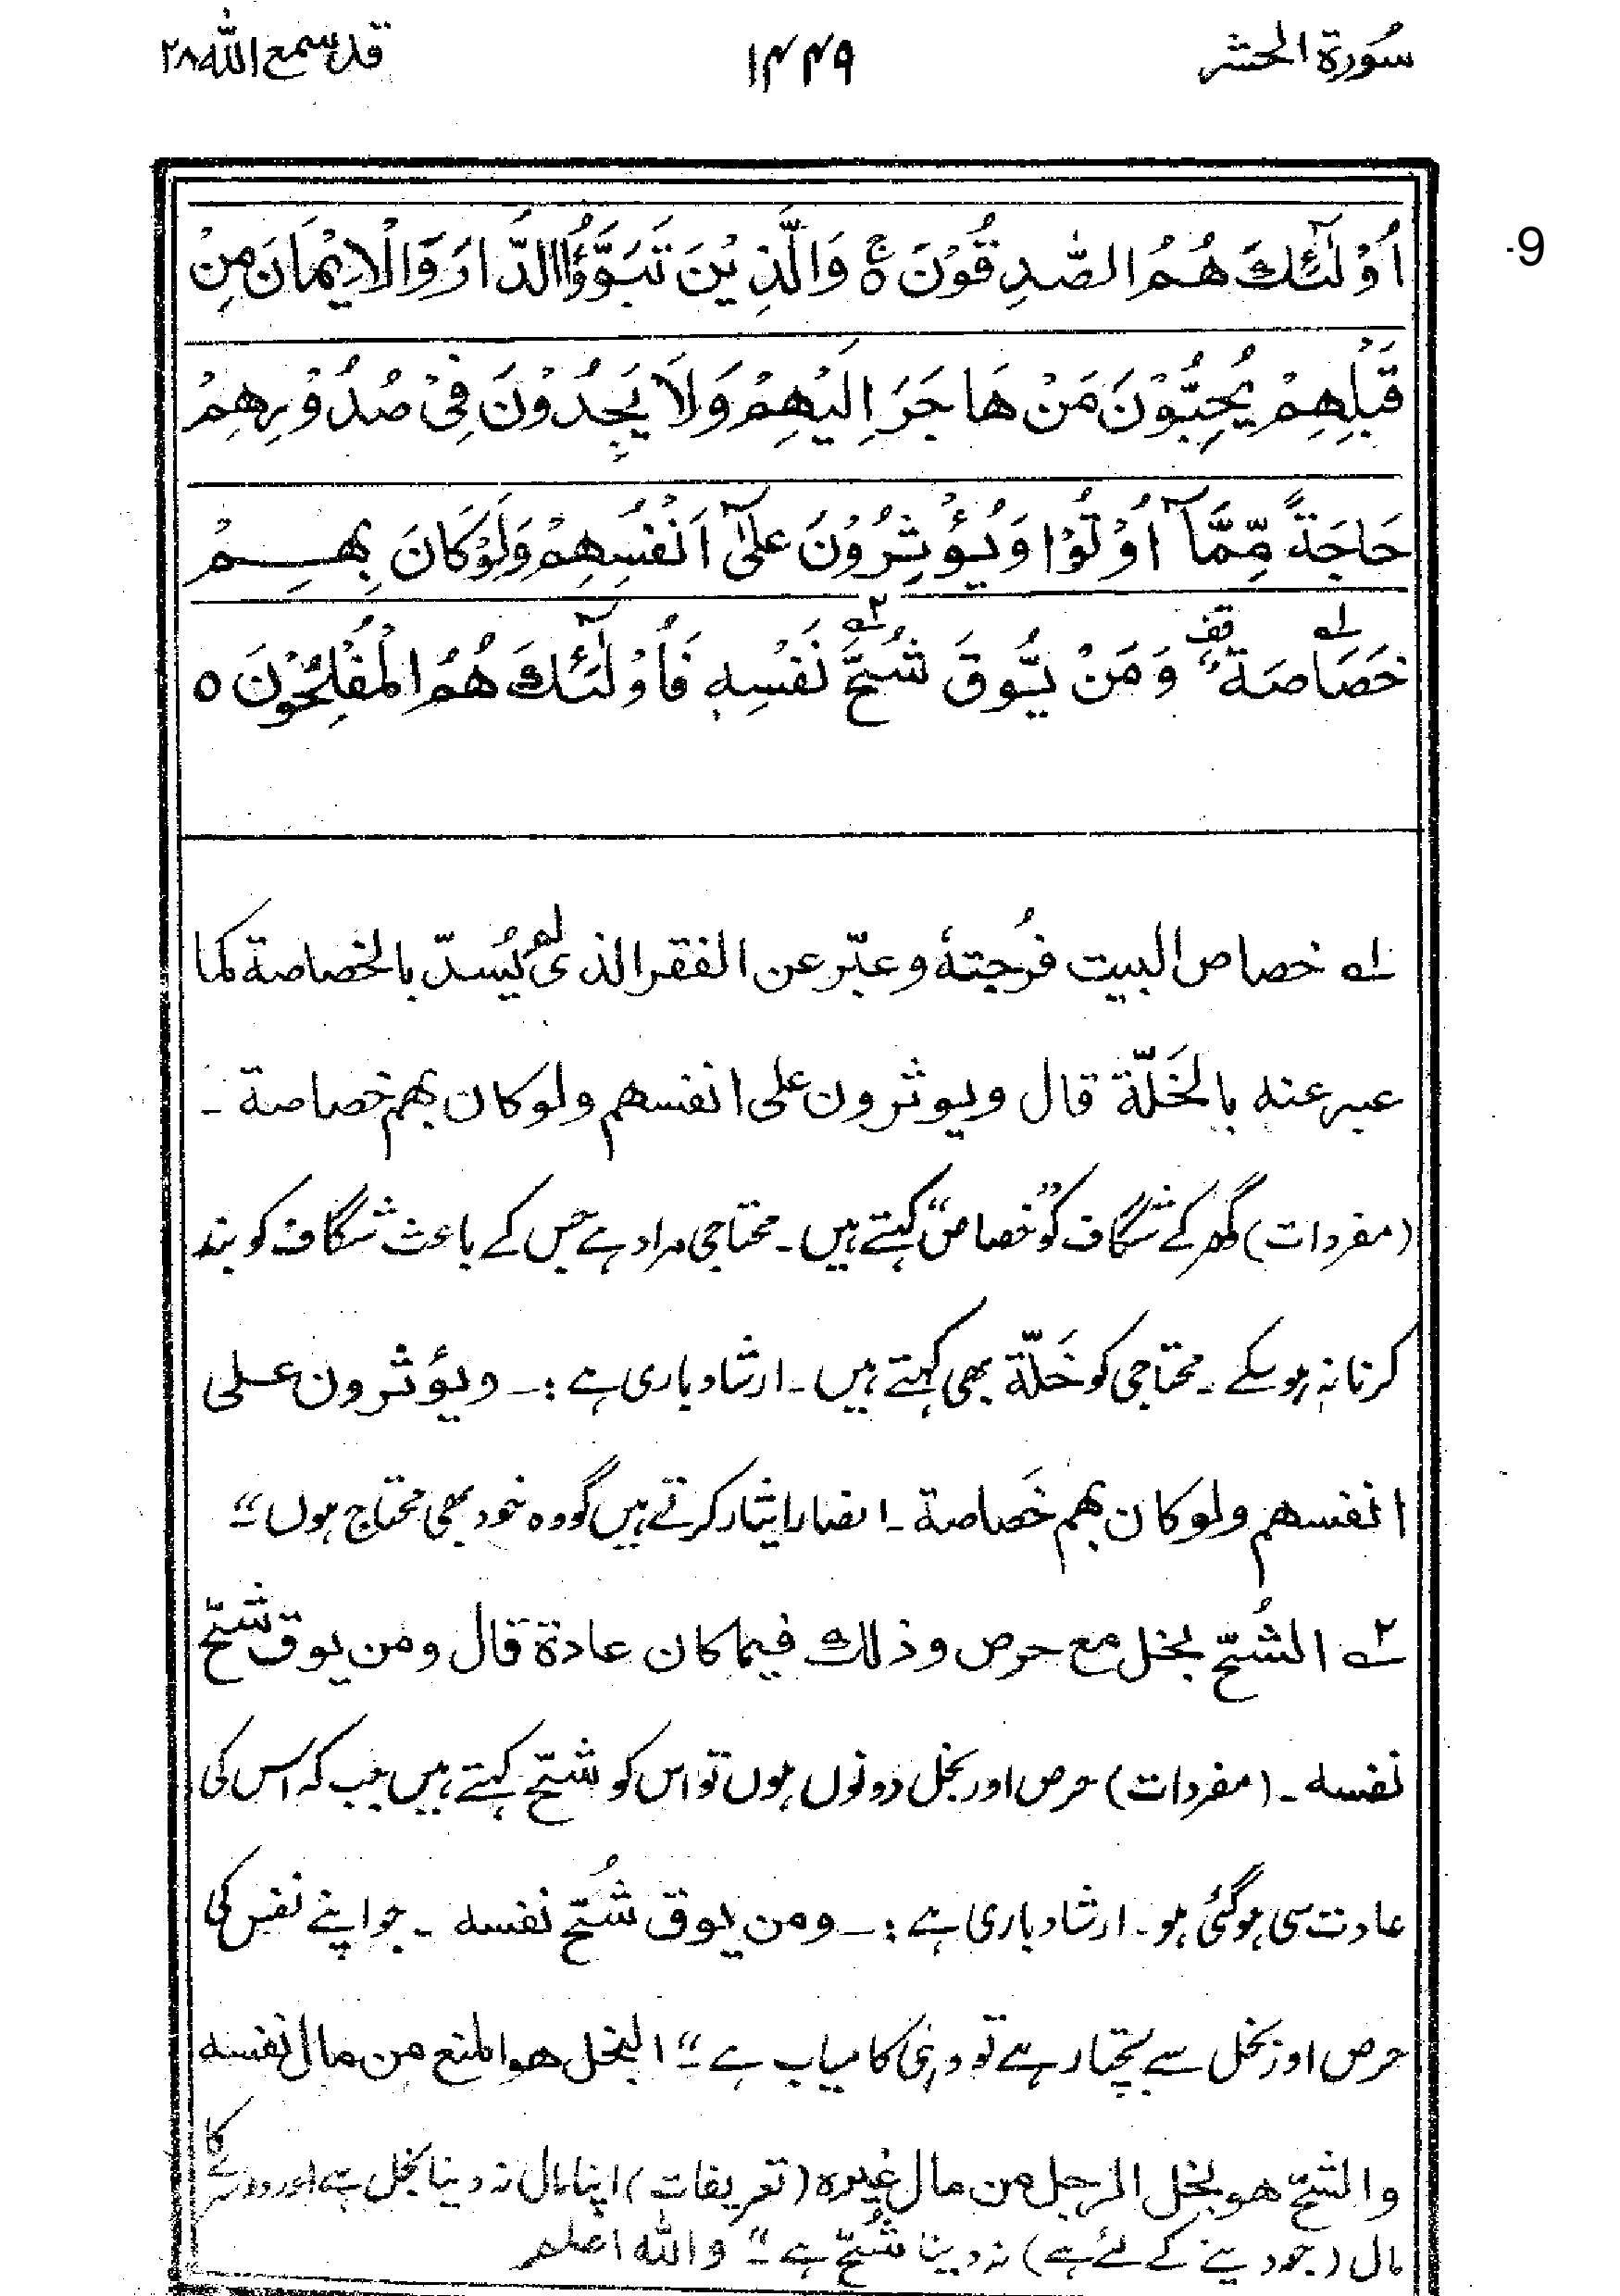 سُورة الحشر ۱۴۴۹ قد سمع الله ۲۸
اُوْلٰٓئِكَ هُمُ الصّٰدِقُوْنَ ۝ۚ وَالَّذِيْنَ تَبَوَّؤُا الدَّارَ وَالْاِيْمَانَ مِنْ
-9
قَبْلِهِمْ يُحِبُّوْنَ مَنْ هَاجَرَ اِلَيْهِمْ وَلَا يَجِدُوْنَ فِىْ صُدُوْرِهِمْ
حَاجَةً مِّمَّآ اُوْتُوْا وَيُؤْثِرُوْنَ عَلٰٓى اَنْفُسِهِمْ وَلَوْ كَانَ بِهِمْ
خَصَاصَةٌ ؕقف وَمَنْ يُّوْقَ شُحَّ نَفْسِهٖ فَاُوْلٰٓئِكَ هُمُ الْمُفْلِحُوْنَ ۝
۱ـه خصاص البيت فُرجتهٗ وعبّر عن الفقر الذى لم يُسدّ بالخصاصة كما
عبر عنه بالخَلّة قال ويوثرون على انفسهم ولو كان بهم خصاصة ـ
(مفردات) گھر کے شگاف کو ”خصاص“ کہتے ہیں۔ محتاجی مراد ہے جس کے باعث شگاف کو بند
کرنا نہ ہو سکے۔ محتاجی کو خَلّة بھی کہتے ہیں۔ ارشاد باری ہے :۔ ويؤثرون على
انفسهم ولو كان بهم خَصاصة ۔ انصار ایثار کرتے ہیں گو وہ خود بھی محتاج ہوں“۔
۲ـه الشُحّ بخل مع حرص وذلك فيما كان عادة قال ومن يوق شحّ
نفسه ۔ (مفردات) حرص اور بخل دونوں ہوں تو اس کو شحّ کہتے ہیں جب کہ اس کی
عادت سی ہو گئی ہو۔ ارشاد باری ہے :۔ ومن يوق شُحّ نفسه ۔ جو اپنے نفس کی
حرص اور بخل سے بچتا رہے تو وہی کامیاب ہے“۔ البخل هو المنع من مال نفسه
والشحّ هو بخل الرجل من مال غيره (تعریفات) اپنا مال نہ دینا بخل ہے اور دوسرے کا
مال (جو دینے کے لئے ہے) نہ دینا شُحّ ہے“۔ والله اعلم